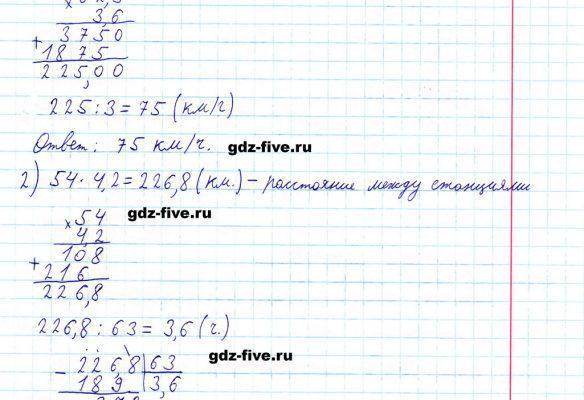 × 62,5
3,6
3750
+
1875
225,00
225 : 3 = 75 (км/г)
Ответ: 75 км/ч. gdz-five.ru
2) 54 · 4,2 = 226,8 (км.) – расстояние между станциями
gdz-five.ru
× 54
4,2
108
+
216
226,8
226,8 : 63 = 3,6 (ч.)
gdz-five.ru
– 226,8 | 63
189 | 3,6
378